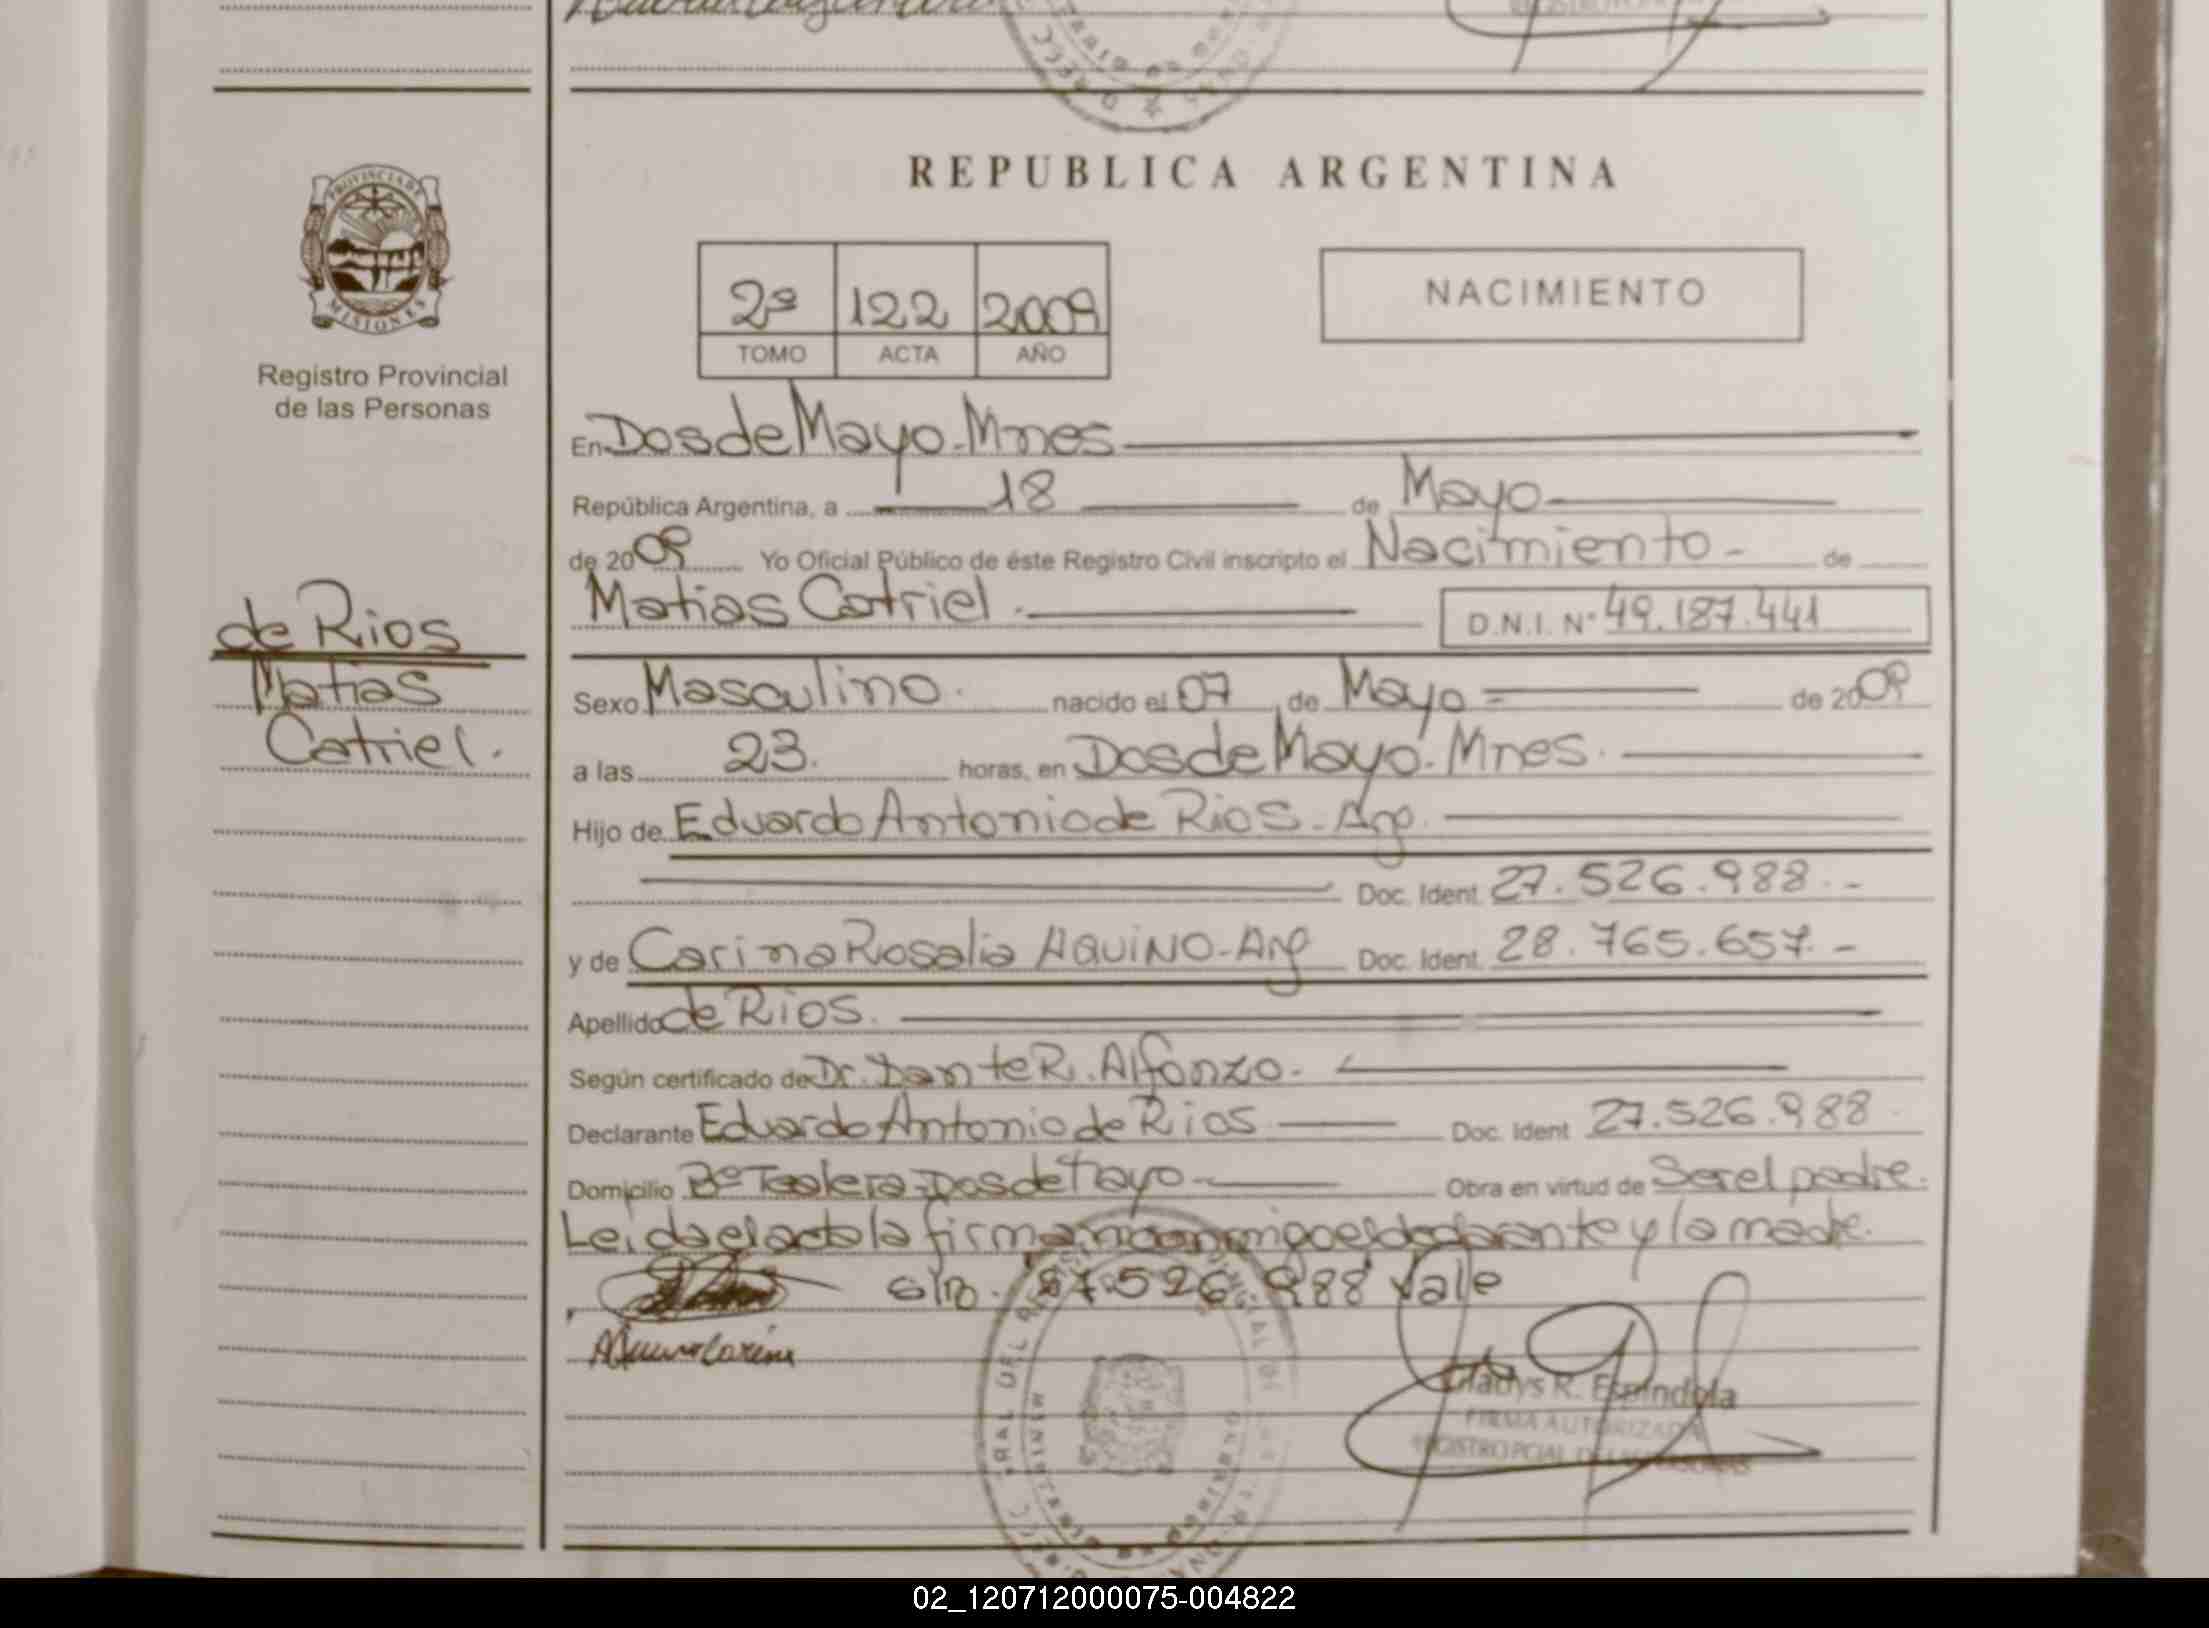 REPUBLICA ARGENTINA
PROVINCIA DE
MISIONES
Registro Provincial
de las Personas
2º 122 2009
TOMO ACTA AÑO
NACIMIENTO
En Dos de Mayo-Mnes
República Argentina, a 18 de Mayo
de 2009 Yo Oficial Público de éste Registro Civil inscripto el Nacimiento - de
Matias Catriel. D.N.I. Nº 49.187.441
de Rios
Matias
Catriel.
Sexo Masculino. nacido el 07 de Mayo - de 2009
a las 23. horas, en Dos de Mayo. Mnes.
Hijo de Eduardo Antonio de Rios - Arg.
Doc. Ident. 27.526.988.-
y de Carina Rosalia AQUINO-Arg Doc. Ident. 28.765.657.-
Apellido de Rios.
Según certificado de Dr. Dante R. Alfonzo.
Declarante Eduardo Antonio de Rios Doc. Ident 27.526.988.
Domicilio Bº Tealera-Dos de Mayo - Obra en virtud de Ser el padre.
Leida el acta la firman conmigo el declarante y la madre.
S/R. 27.526.988 Vale
Gladys R. Espindola
FIRMA AUTORIZADA
REGISTRO PCIAL DE LAS PERSONAS
02_120712000075-004822